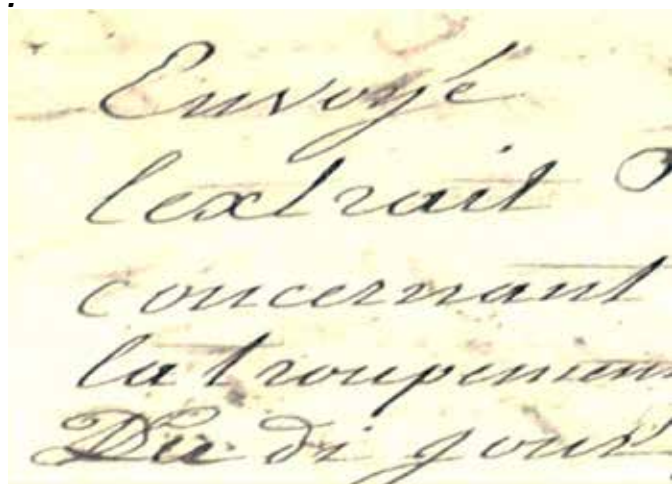 Envoyé
l'extrait
concernant
latroupemen
Du di jour